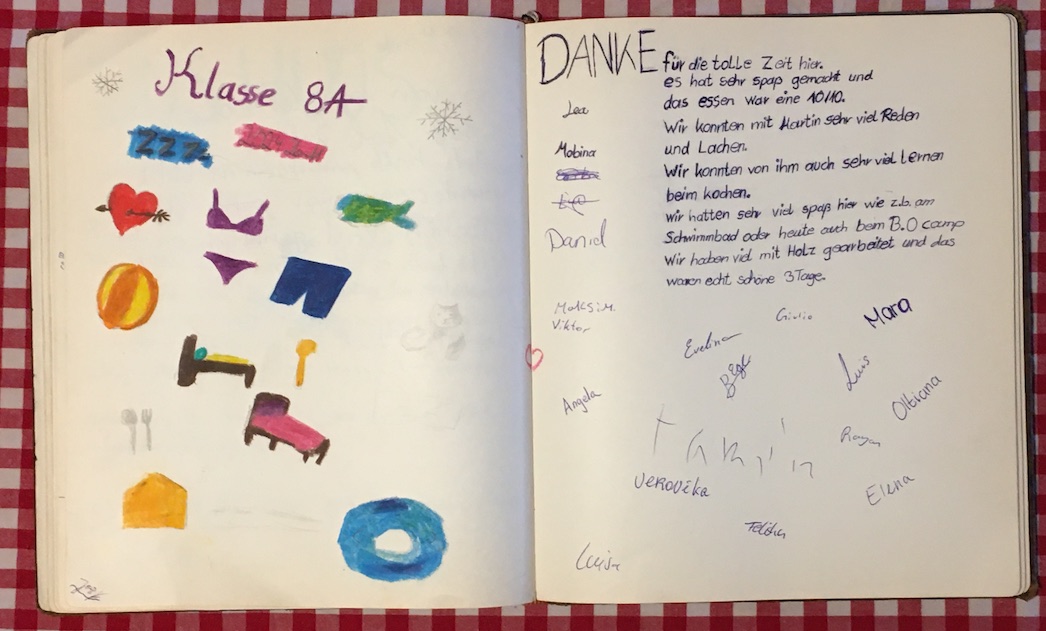 Klasse 8A
ZZZ
DANKE für die tolle Zeit hier.
es hat sehr spaß gemacht und
das essen war eine 10/10.
Wir konnten mit Martin sehr viel Reden
und Lachen.
Wir konnten von ihm auch sehr viel lernen
beim kochen.
wir hatten sehr viel spaß hier wie z.b. am
Schwimmbad oder heute auch beim B.O camp
Wir haben viel mit Holz gearbeitet und das
waren echt schöne 3 Tage.
Lea
Mobina
Daniel
Maksim
Viktor
Giulio
Mara
Evelina
Luis
Angela
Oltiana
Veronika
Elena
Luisa